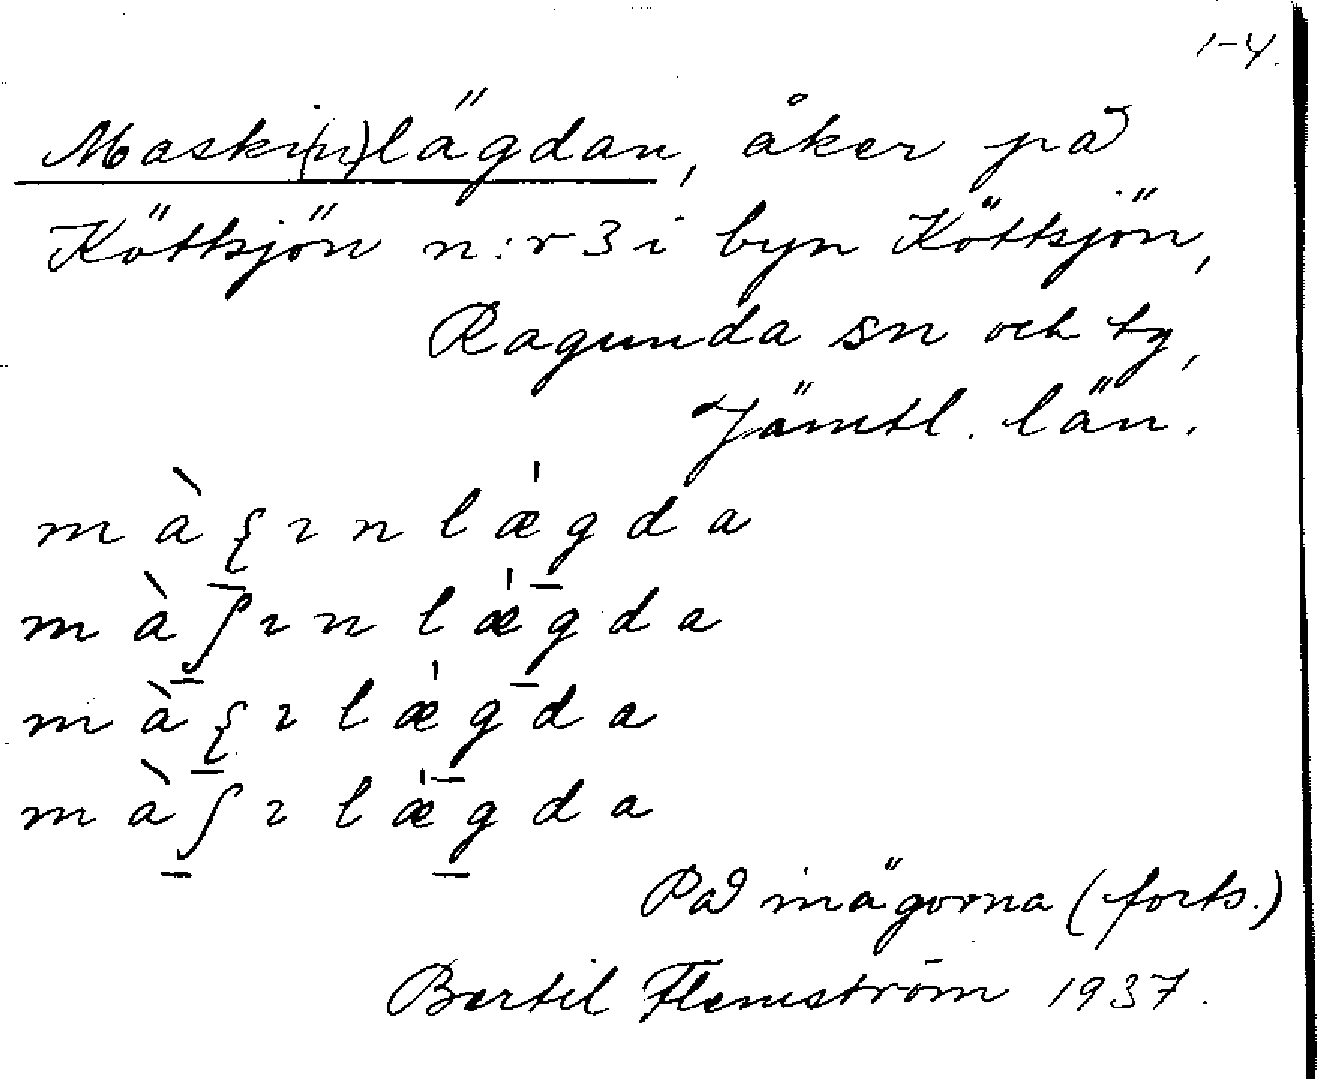 1-4.
Maski(n)lägdan, åker på
Köttsjön n:r 3 i byn Köttsjön,
Ragunda sn och tg,
Jämtl. län.
màʂınlǽgda
màʃınlǽgda
màʂılǽgda
màʃılǽgda
På inägorna (forts.)
Bertil Flemström 1937.